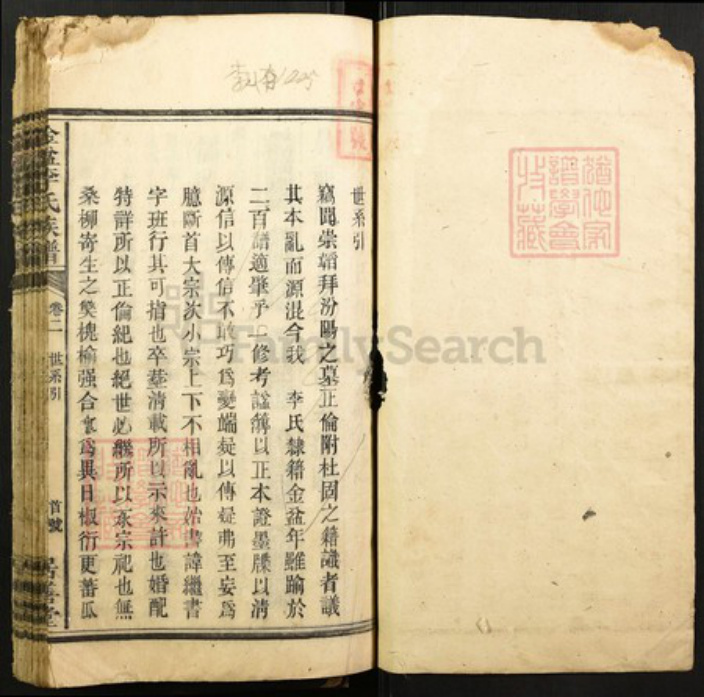 世系引
竊聞崇韜拜汾陽之墓正倫附杜固之籍識者議
其本亂而源混今我 李氏隸籍金盆年雖踰於
二百譜適肇乎一修考謚簿以正本證墨牒以清
源信以傳信不敢巧為變端疑以傳疑弗至妄為
臆斷首大宗次小宗上下不相亂也始書諱繼書
字班行其可指也卒塟清載所以示來許也婚配
特詳所以正倫紀也絕世必繼所以永宗祀也無
桑柳寄生之獘槐榆强合為異日椒衍更蕃瓜
金盆李氏族譜
卷二 世系引
首號
居善堂
FamilySearch
猶他家譜學會特藏